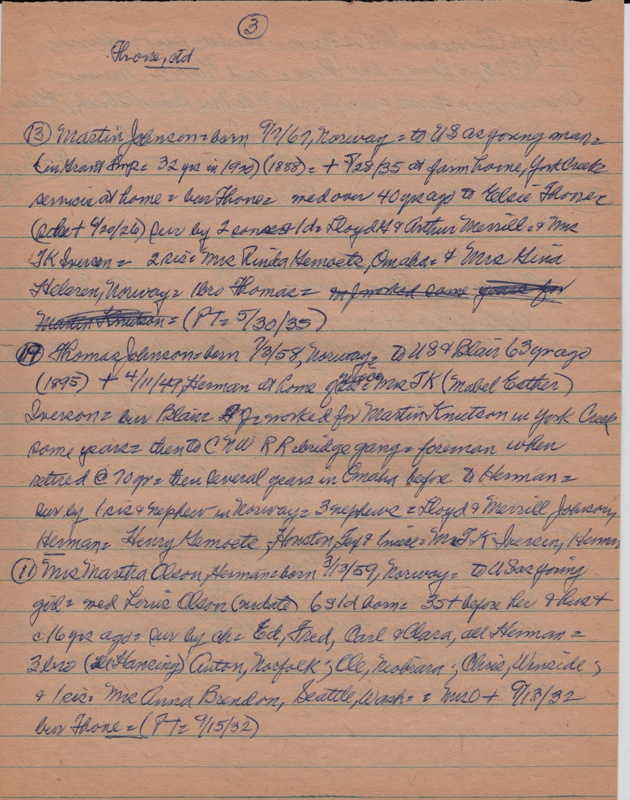 3
Thone, ctd
(13) Martin Johnson = born 9/7/67, Norway = to US as young man =
(in Grant Imp = 32 yrs in 1900) (1888) = + 5/28/35 at farm home, York Creek
services at home = bur Thone = wed over 40 yrs ago to Elsie Thone
(she + 9/20/26) sur by 2 sons & 1d = Lloyd H & Arthur Merrill = & Mrs
TK Iverson = 2 sis = Mrs Rinda Gemoets, Omaha = & Mrs Gina
Helgren, Norway = 1 bro Thomas =
Martin Knutson = (PT = 5/30/35)
(14) Thomas Johnson = born 7/3/58, Norway = to US & Blair 63 yr ago
(1895) + 4/11/49, Herman at home of niece = Mrs TK (Mabel Esther)
Iverson = bur Blair = worked for Martin Knutson in York Creek
some years = then to CNW RR bridge gang = foreman when
retired @ 70 yr = then several years in Omaha before to Herman =
sur by 1 sis & nephew in Norway = 3 nephews = Lloyd & Merrill Johnson,
Herman = Henry Gemoets, Houston, & niece = Mrs TK Iverson, Herman
(11) Mrs Martha Olson, Herman = born 3/13/59, Norway = to US as young
girl = wed Louis Olson (nodate) 6s 1d born = 3s + before her & hus +
c 16 yrs ago = sur by ch = Ed, Fred, Carl & Clara, all Herman =
3 bro (Hansing) Anton, Norfolk; Ole, Niobrara; Chris, Winside;
& 1 sis = Mrs Anna Brendon, Seattle, Wash = = Mrs O + 9/13/32
bur Thone = (PT = 9/15/32)